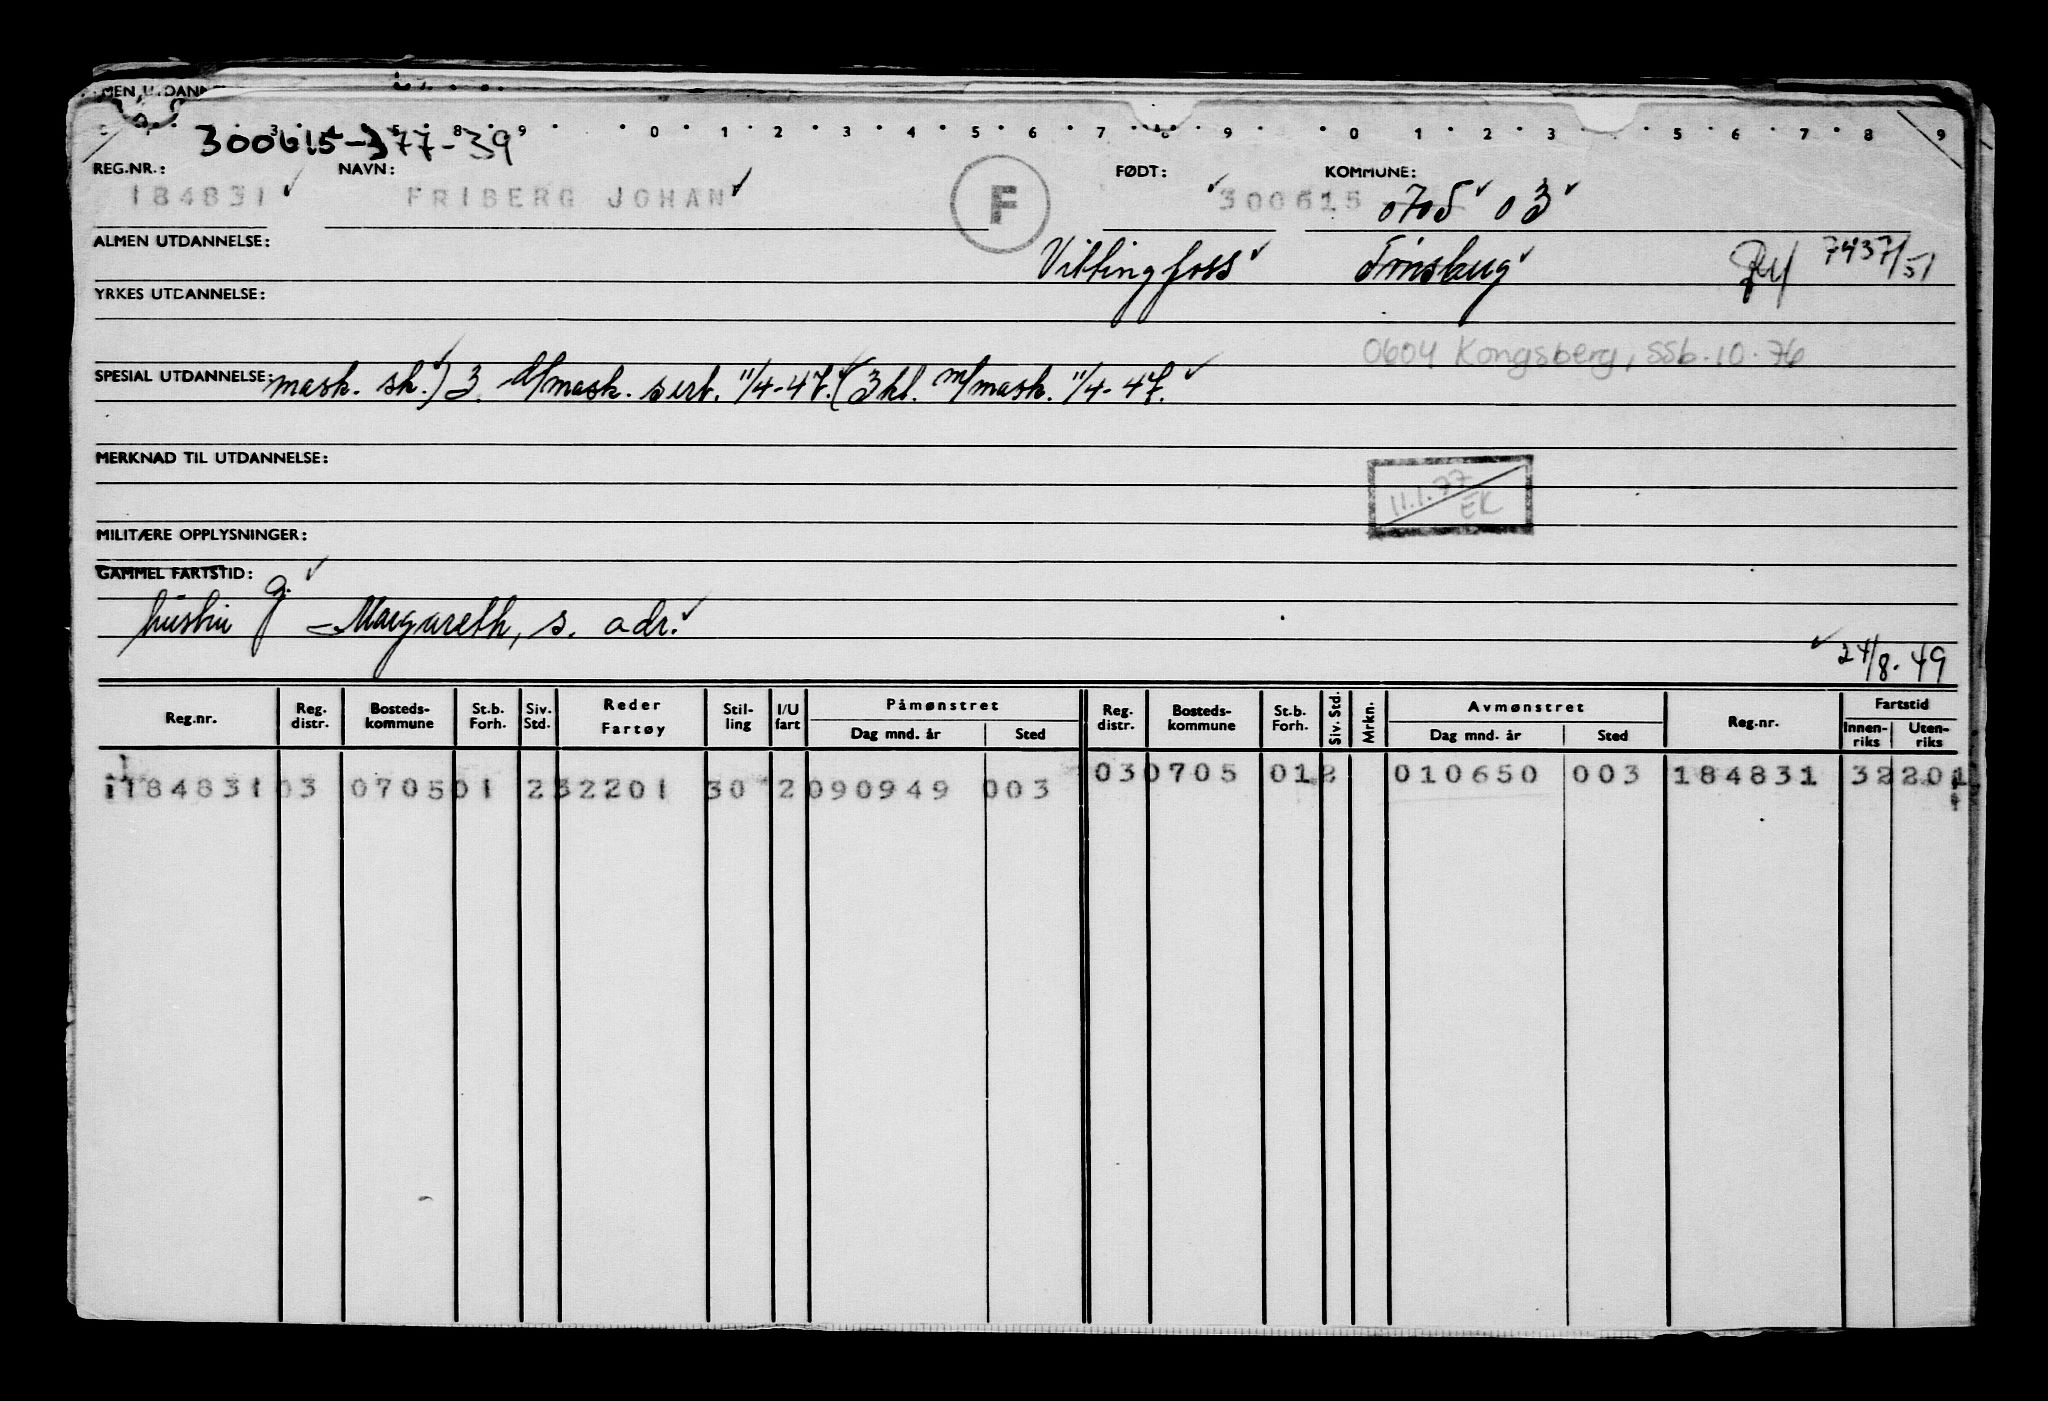 300615-377-39
REG.NR.: NAVN: FØDT: KOMMUNE:
184831 FRIBERG JOHAN F 300615 0705 03
ALMEN UTDANNELSE: Vittingfoss Tønsberg 7437/51
YRKES UTDANNELSE:
0604 Kongsberg, ssb. 10.76
SPESIAL UTDANNELSE: mask. sk.) 3. mask. sert. 11/4-47. (3 kl. m/mask. 11/4-47.
MERKNAD TIL UTDANNELSE:
11.1.77
EK
MILITÆRE OPPLYSNINGER:
GAMMEL FARTSTID: g.
hustru Margareth, s. adr.
24/8.49
Reg.nr. Reg. distr. Bosteds-kommune St.b. Forh. Siv. Std. Reder Fartøy Stil-ling I/U fart Påmønstret Dag mnd. år Sted Reg. distr. Bosteds-kommune St.b. Forh. Siv. Std. Mrkn. Avmønstret Dag mnd. år Sted Reg.nr. Fartstid Innen-riks Uten-riks
184831 03 0705 01 2 32201 30 2 090949 003 03 0705 01 2 010650 003 184831 32 201